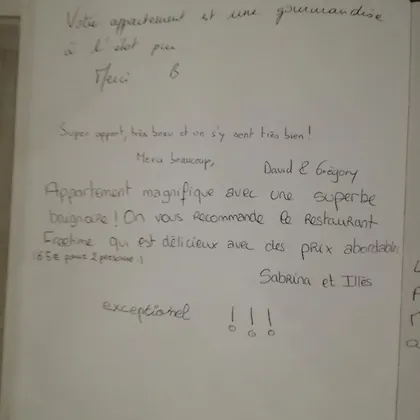 Votre appartement est une gourmandise
à l'état pur
Merci B
Super appart, très beau et on s'y sent très bien !
Merci beaucoup,
David & Grégory
Appartement magnifique avec une superbe
baignoire ! On vous recommande le restaurant
qui est délicieux avec des prix abordable
65€ pour 2 personne !
Sabrina et Illès
exceptionel !!!